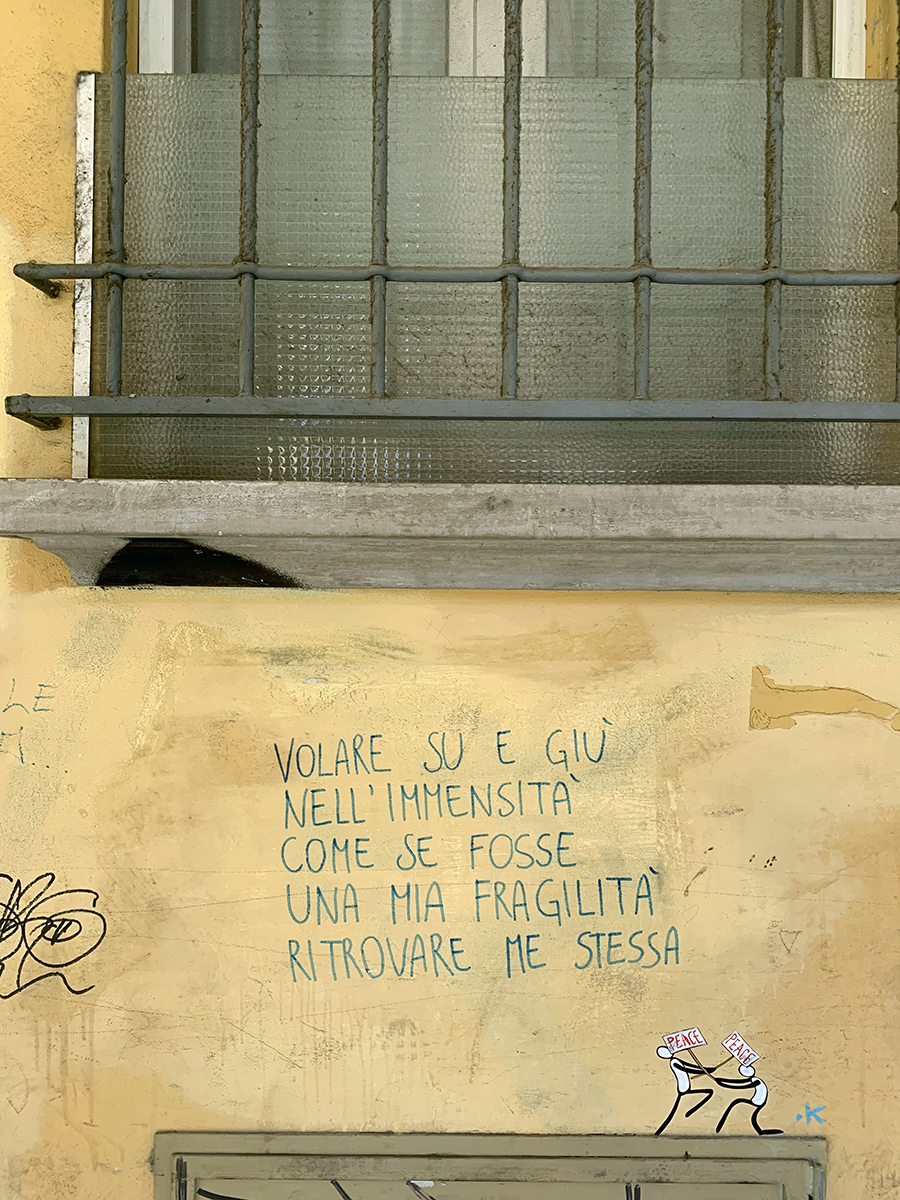 LE
VOLARE SU E GIÙ
NELL'IMMENSITÀ
COME SE FOSSE
UNA MIA FRAGILITÀ
RITROVARE ME STESSA
PEACE
PEACE
.K